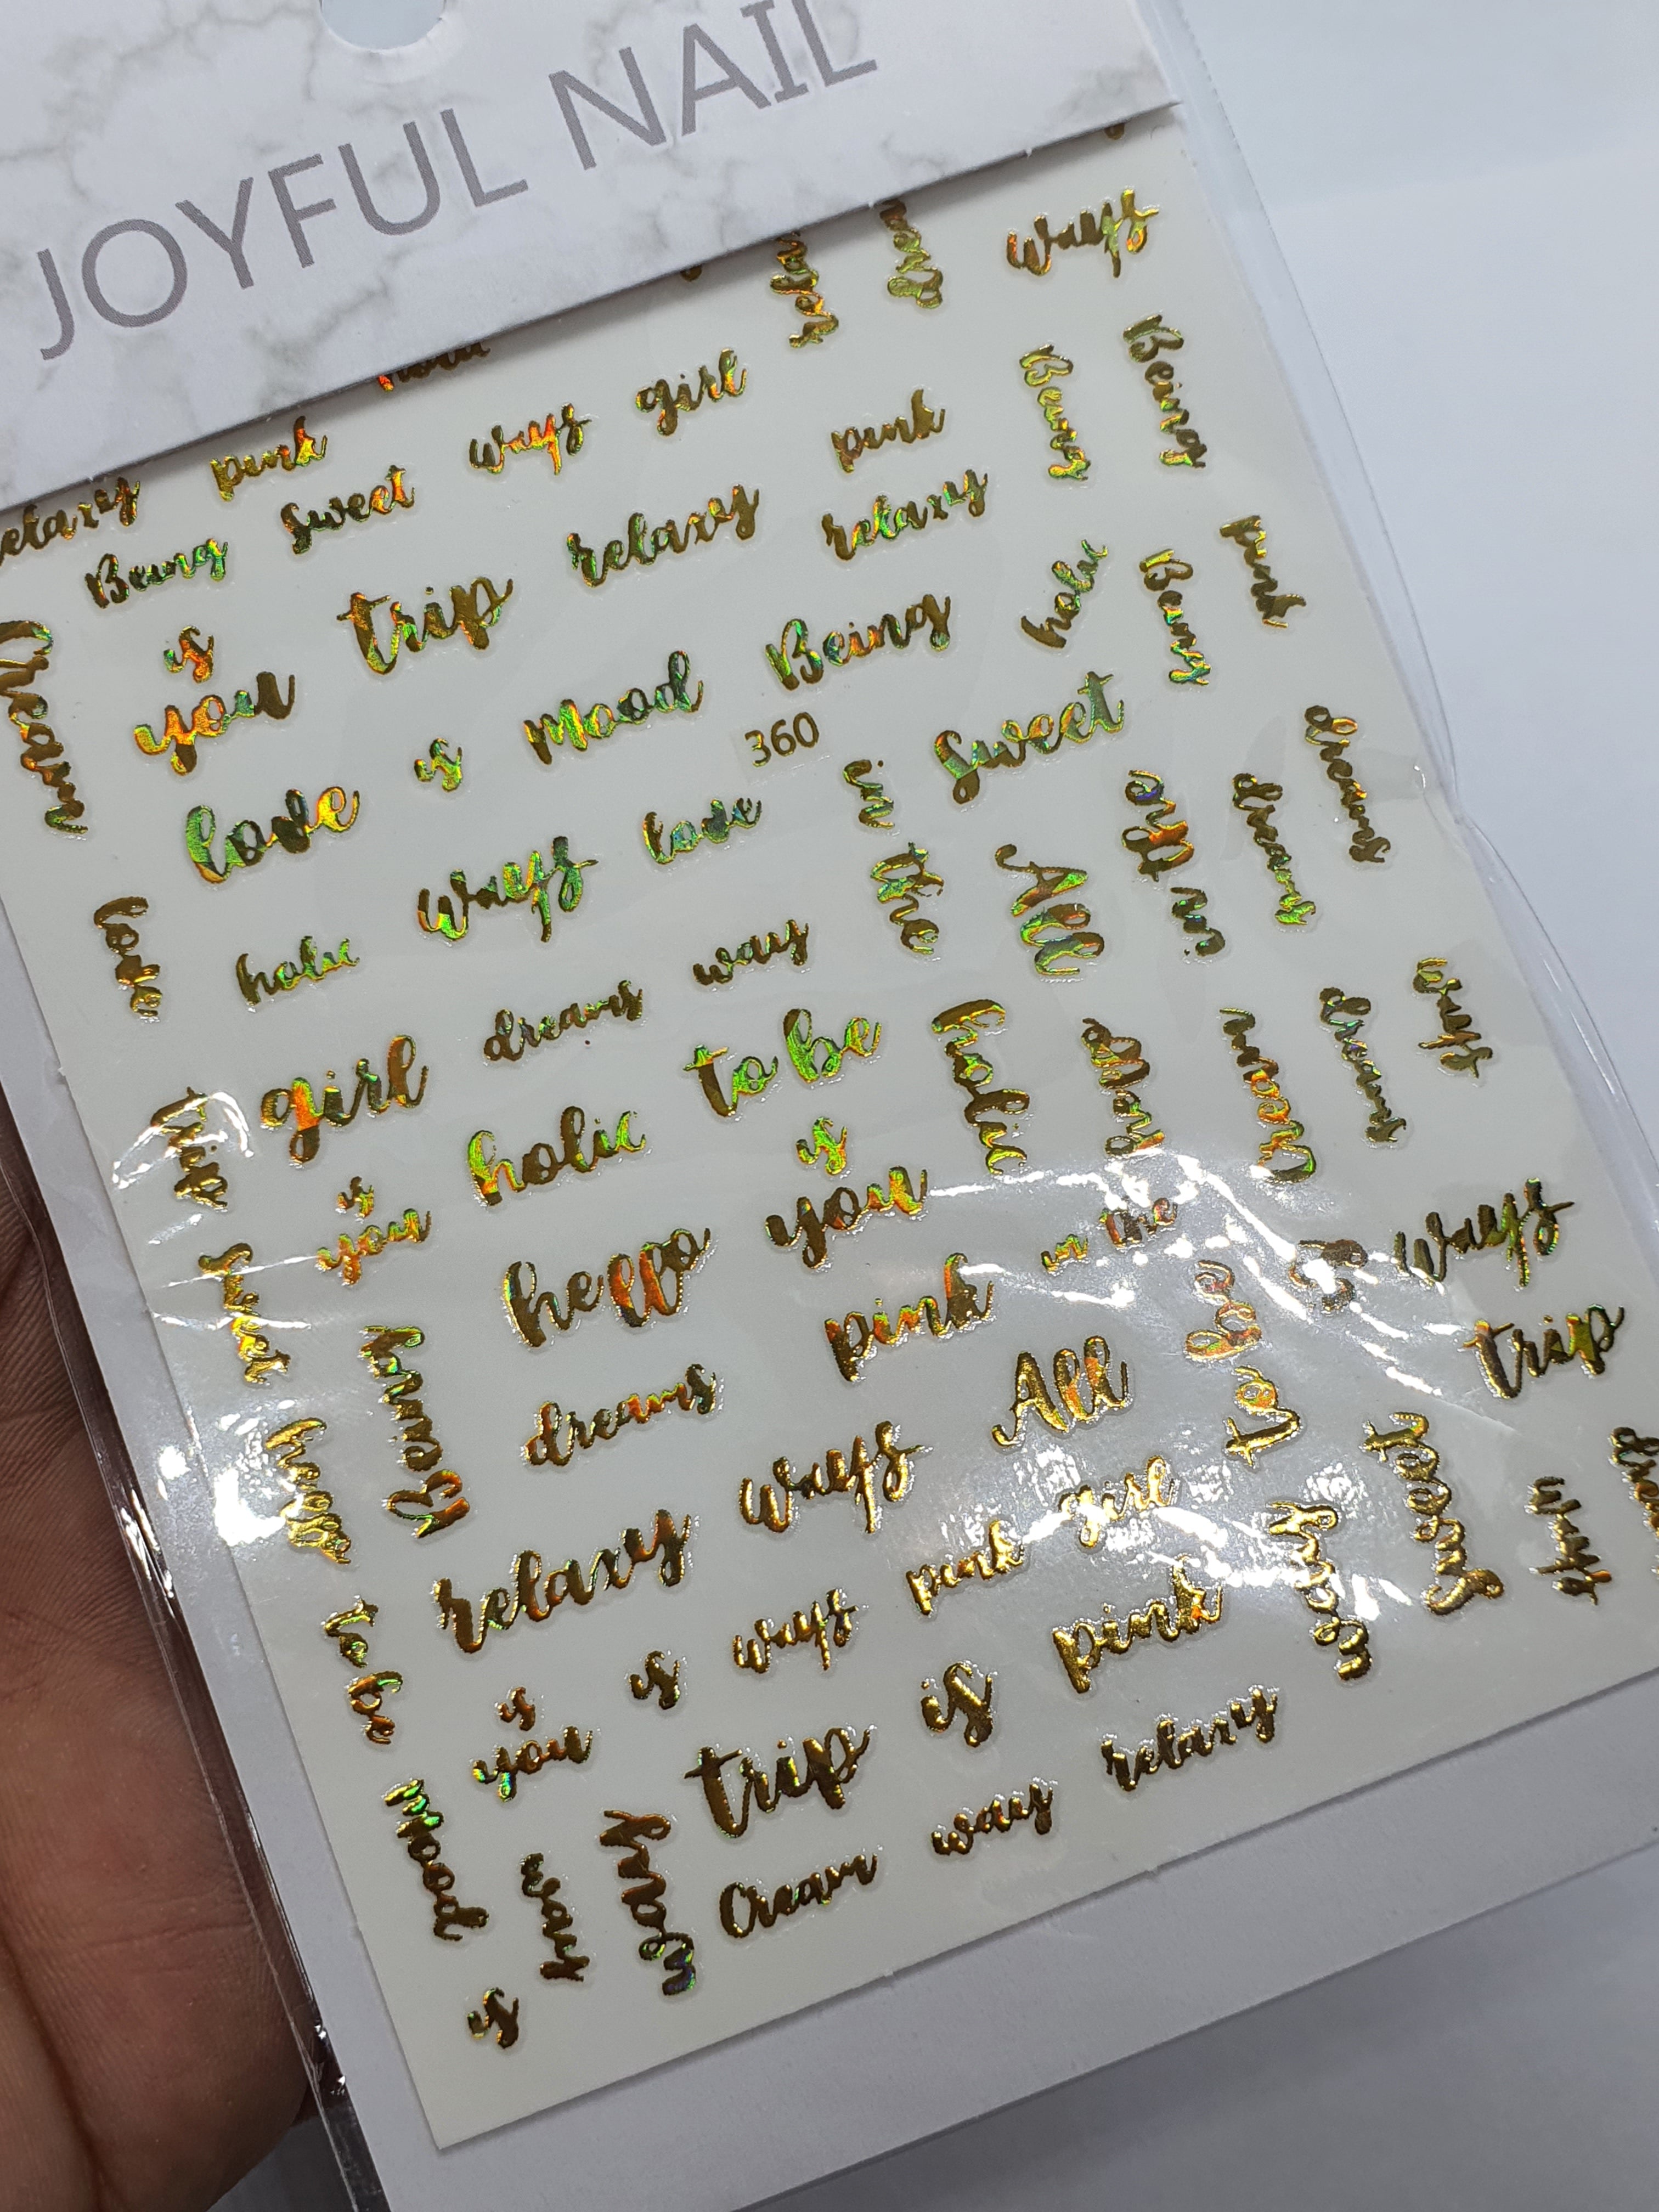 JOYFUL NAIL
ways
relaxy pink ways girl
Being sweet relaxy pink Being Being
is
you trip relaxy
Cream mood Being holic Being pink
love is 360 sweet
ways love in the All in the dreams dreams
love holic dreams way
girl to be holic mood Cream dreams ways
trip holic is
is
you hello you in the ways
sweet pink is trip
Being dreams All to be
hello relaxy ways girl sweet ways
pink
to be is ways pink
is
you trip is relaxy
mood way Cream way
is